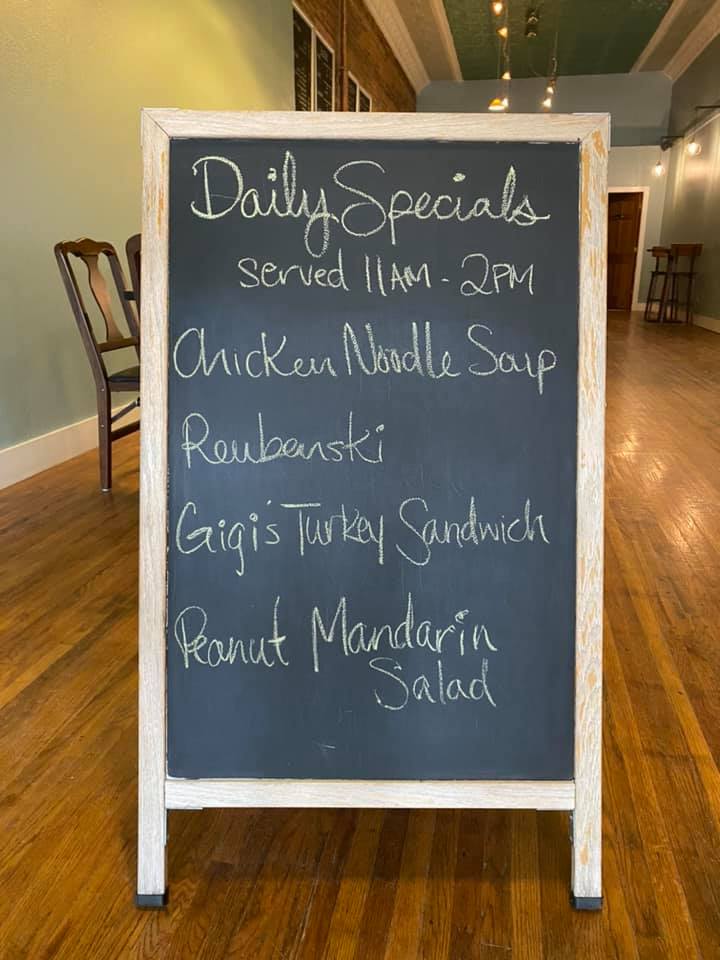 Daily Specials
served 11AM - 2PM
Chicken Noodle Soup
Reubenski
Gigi's Turkey Sandwich
Peanut Mandarin
Salad